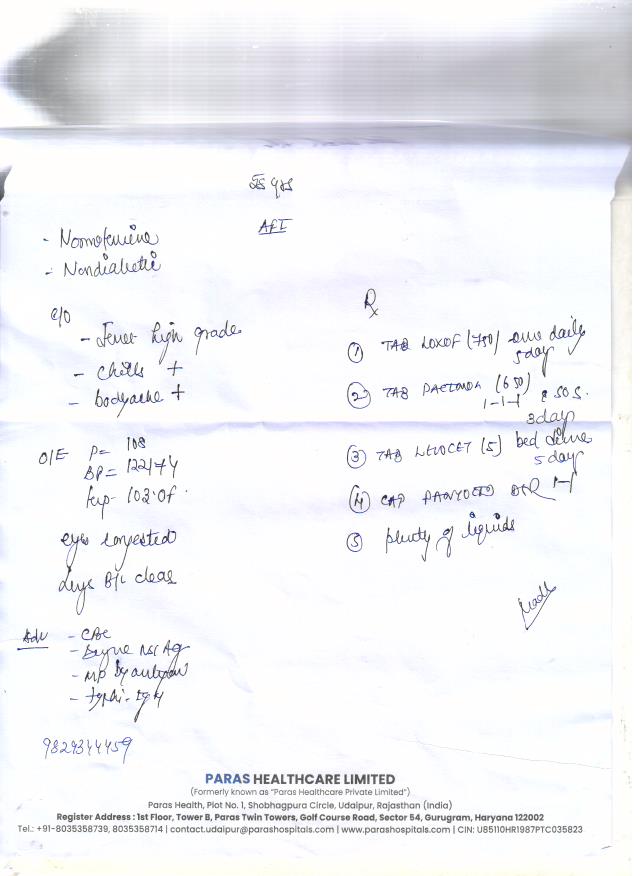 AFI
- Normotensive
- Nondiabetic
C/O
- Fever high grade
- chills +
- bodyache +
O/E P= 108
BP= 122/74
Temp- 102.0f
eyes congested
Lungs B/L clear
Adv - CBC
- Dengue NS1 Ag
- MP by antigen
- Typhi-IgM
9829344459
Rx
① TAB LOXOF (750) once daily
5 day
② TAB (650)
1-1-1 & SOS.
3 day
③ TAB LEVOCET (5) bed time
5 day
④ CAP DSR 1-1
⑤ plenty of liquids
PARAS HEALTHCARE LIMITED
(Formerly known as "Paras Healthcare Private Limited")
Paras Health, Plot No. 1, Shobhagpura Circle, Udaipur, Rajasthan (India)
Register Address : 1st Floor, Tower B, Paras Twin Towers, Golf Course Road, Sector 54, Gurugram, Haryana 122002
Tel.: +91-8035358739, 8035358714 | contact.udaipur@parashospitals.com | www.parashospitals.com | CIN: U85110HR1987PTC035823